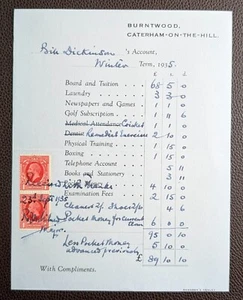 BURNTWOOD,
CATERHAM-ON-THE-HILL.
Bill Dickinson 's Account,
Winter Term, 1935.
£ s. d.
Board and Tuition 68 5 0
Laundry 3 3 0
Newspapers and Games 1 1 0
Golf Subscription 1 1 6
Medical Attendance Cricket 1 1 0
Dentist Remedial Exercises 2 10 0
Physical Training 1 15
Boxing 1 15
Telephone Account 5
Books and Stationery 3 11
Received with thanks 4 10 0
Examination Fees 2 15 0
23rd Sept 1935 Cleaned & Shoe repairs 4 6
Pocket money for current term 6 0 0
Major. 95 0 10
Less Pocket Money
advanced previously 5 10 0
£ 89 10 10
With Compliments.